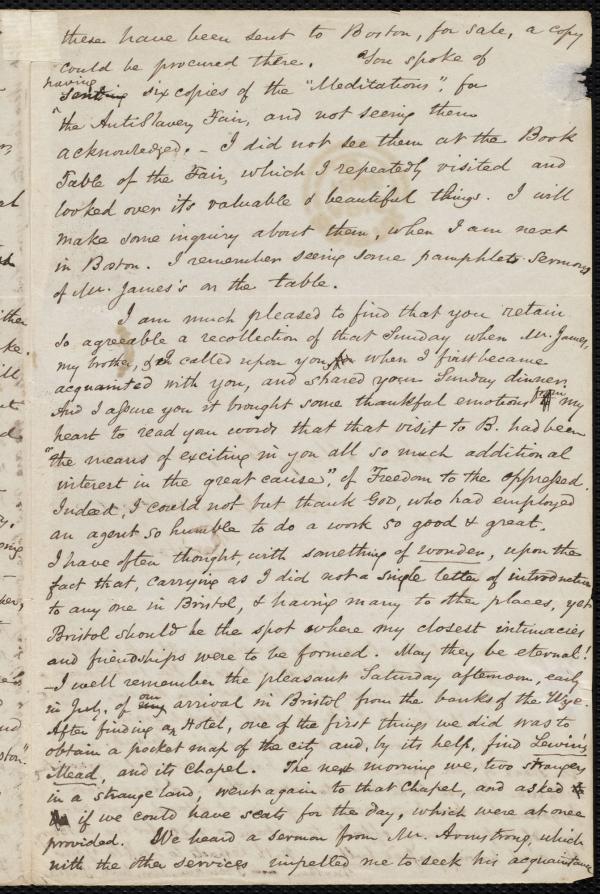 these have been sent to Boston, for sale, a copy
could be procured there. You spoke of
having
sending six copies of the "Meditations", for
the AntiSlavery Fair, and not seeing them
acknowledged. – I did not see them at the Book
Table of the Fair, which I repeatedly visited and
looked over its valuable & beautiful things. I will
make some inquiry about them, when I am next
in Boston. I remember seeing some pamphlets Sermons
of Mr. James's on the table.
I am much pleased to find that you retain
so agreeable a recollection of that Sunday when Mr. James,
my brother, & I called upon you, when I first became
acquainted with you, and shared your Sunday dinner.
And I assure you it brought some thankful emotions from my
heart to read your words that that visit to B. had been
"the means of exciting in you all so much additional
interest in the great cause", of Freedom to the oppressed.
Indeed, I could not but thank God, who had employed
an agent so humble to do a work so good & great.
I have often thought, with something of wonder, upon the
fact that, carrying as I did not a single letter of introduction
to any one in Bristol, & having many to other places, yet
Bristol should be the spot where my closest intimacies
and friendships were to be formed. May they be eternal!
– I well remember the pleasant Saturday afternoon, early
in July, of our arrival in Bristol from the banks of the Wye.
After finding a Hotel, one of the first things we did was to
obtain a pocket map of the city, and, by its help, find Lewin's
Mead, and its Chapel. The next morning we, two strangers
in a strange land, went again to that Chapel, and asked
if we could have seats for the day, which were at once
provided. We heard a sermon from Mr. Armstrong, which
with the other services impelled me to seek his acquaintance